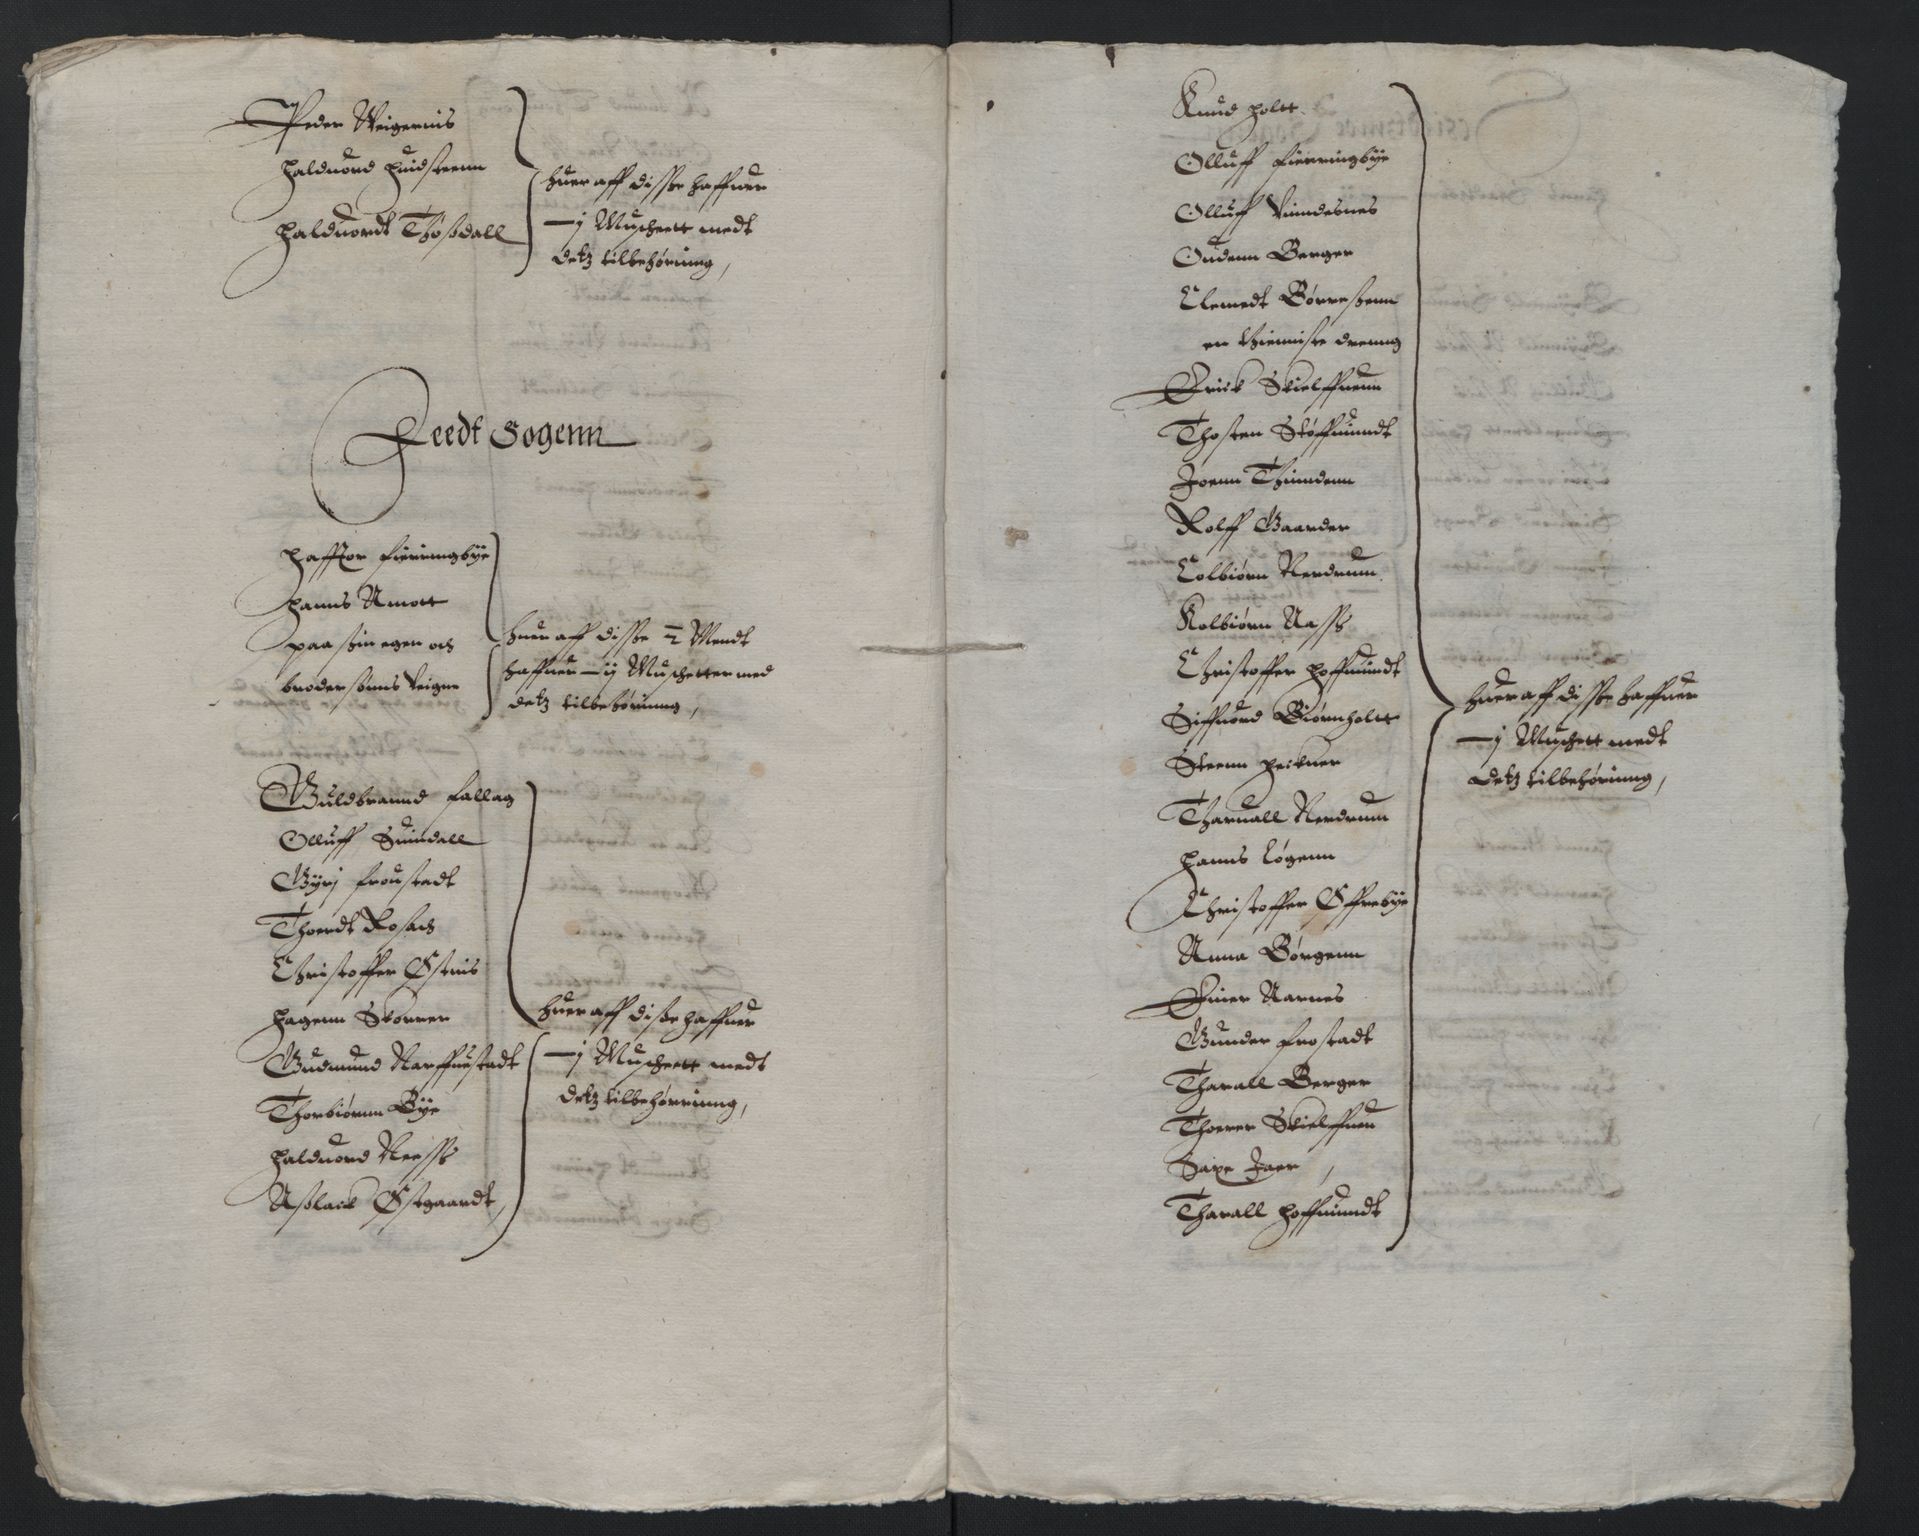 Peder Weigernis
Halduord Huidsteenn
Halduordt Thoßdall
Huer aff disse haffuer
—j Muscheett medt
detz tilbehøriung,
Eeedt Sogenn
Hafftor Fierringbye
Hanns Amott
paa sin egen och
broder sønns Veigne
Huer aff disse 2 Mendt
haffuer —ij Muschetter med
detz tilbehøriung,
Guldbrannd Fallag
Olluff Suindall
Gyri Froustadt
Thordt Rosach
Christoffer Østnis
Hagenn Skorrer
Gudmund Narffuestadt
Thorbiørnn Bye
Halduord Neess
Aßlack Østgaardt,
Huer aff diße haffuer
—j Muscheett medt
detz tilbehørriung,
Knud Holtt
Olluff Fierringbye
Olluff Vindesnes
Oudenn Berger
Clemedt Børresenn
en thienniste dreung
Erick Skielffuenn
Thosten Støffuindt
Joenn Thindenn
Rolff Gaarder
Colbiørn Nerdrum
Kolbiørn Nass
Christoffer Hoffuindt
Siffuord Biørnholtt
Steenn Heckner
Tharuall Nerdrum
Hanns Løgenn
Christoffer Øffrebye
Anna Børgenn
Einer Narnes
Gunder Frostadt
Tharall Berger
Thorer Skielffuen
Saxe Jaer,
Tharall Hoffuindt
Huer aff disse haffuer
—j Muschett medt
detz tilbehøriung,